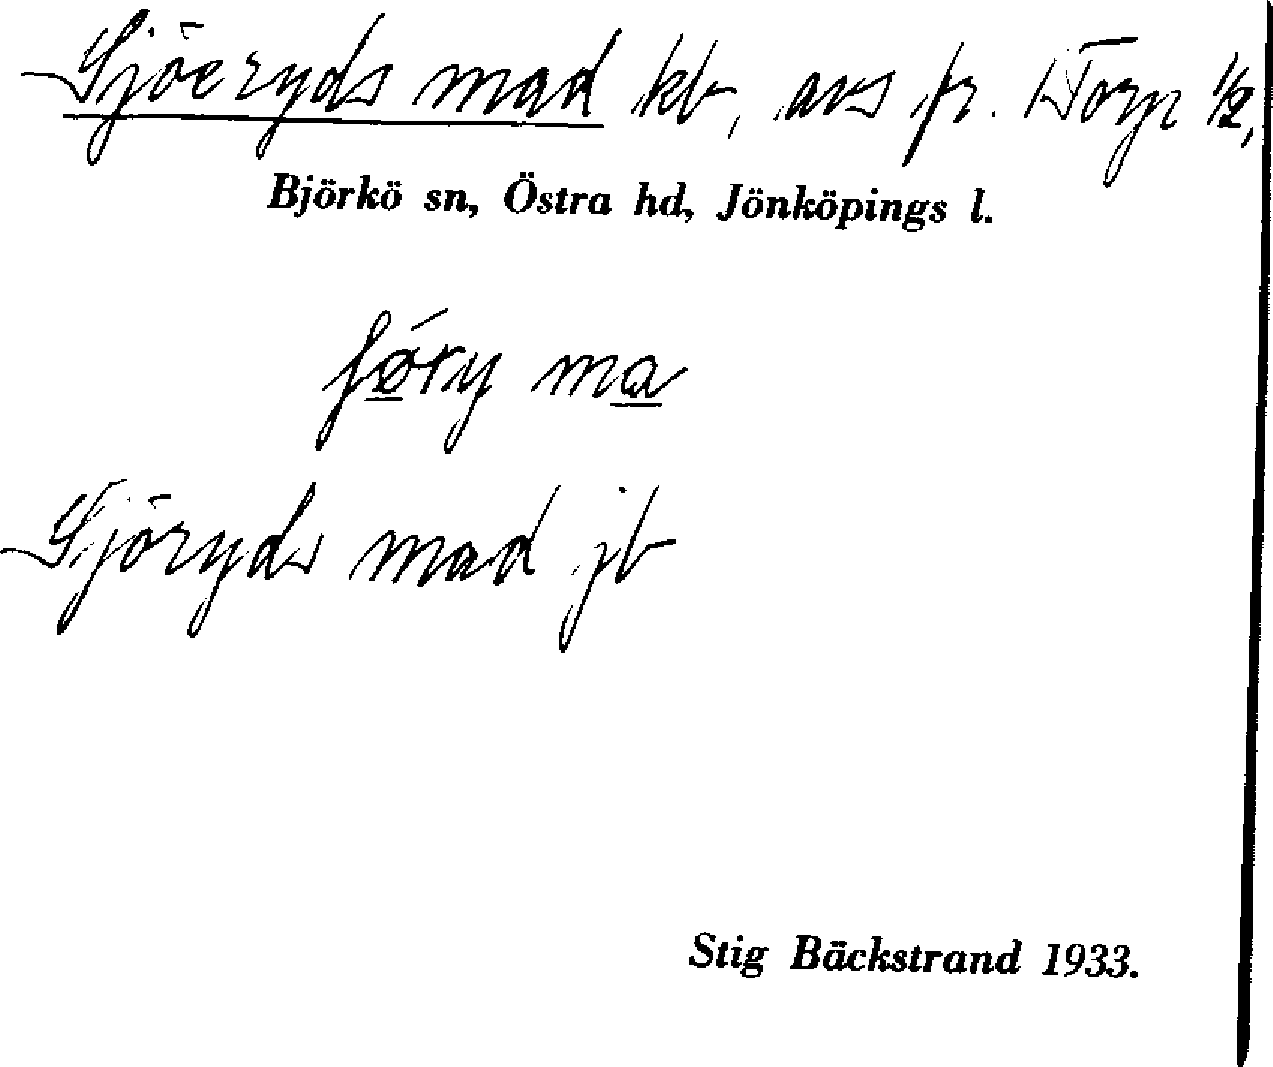 Sjöeryds mad kb, avs fr. Torp 1/2,
Björkö sn, Östra hd, Jönköpings l.
ʃǿry ma
Sjöryds mad jb
Stig Bäckstrand 1933.